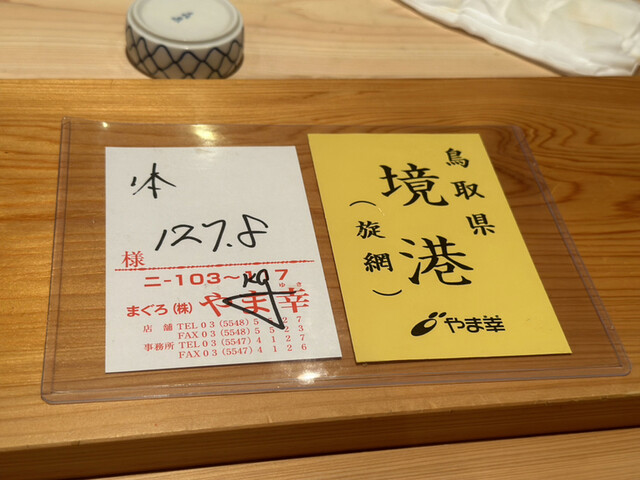 本
127.8
KG
様
二-103～117
まぐろ(株)やま幸
ゆき
店舗 TEL 03 (5548) 5527
FAX 03 (5548) 5523
事務所 TEL 03 (5547) 4127
FAX 03 (5547) 4126
鳥取県
境港
(旋網)
やま幸